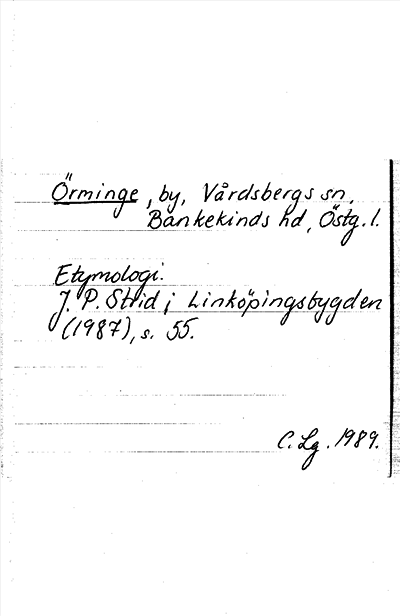 Örminge, by, Vårdsbergs sn,
Bankekinds hd, Östg. l.
Etymologi.
J. P. Strid i Linköpingsbygden
(1987), s. 55.
C. Lg. 1989.